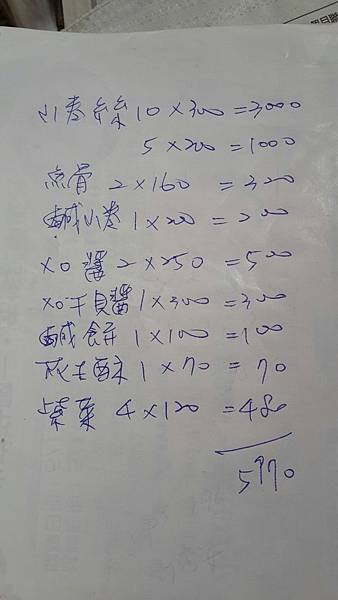 小卷絲 10×300=3000
5×200=1000
魚骨 2×160 =320
鹹小卷 1×200=200
XO醬 2×250=500
XO干貝醬 1×300=300
鹹餅 1×100=100
花生酥 1×70=70
紫菜 4×120=480
5970